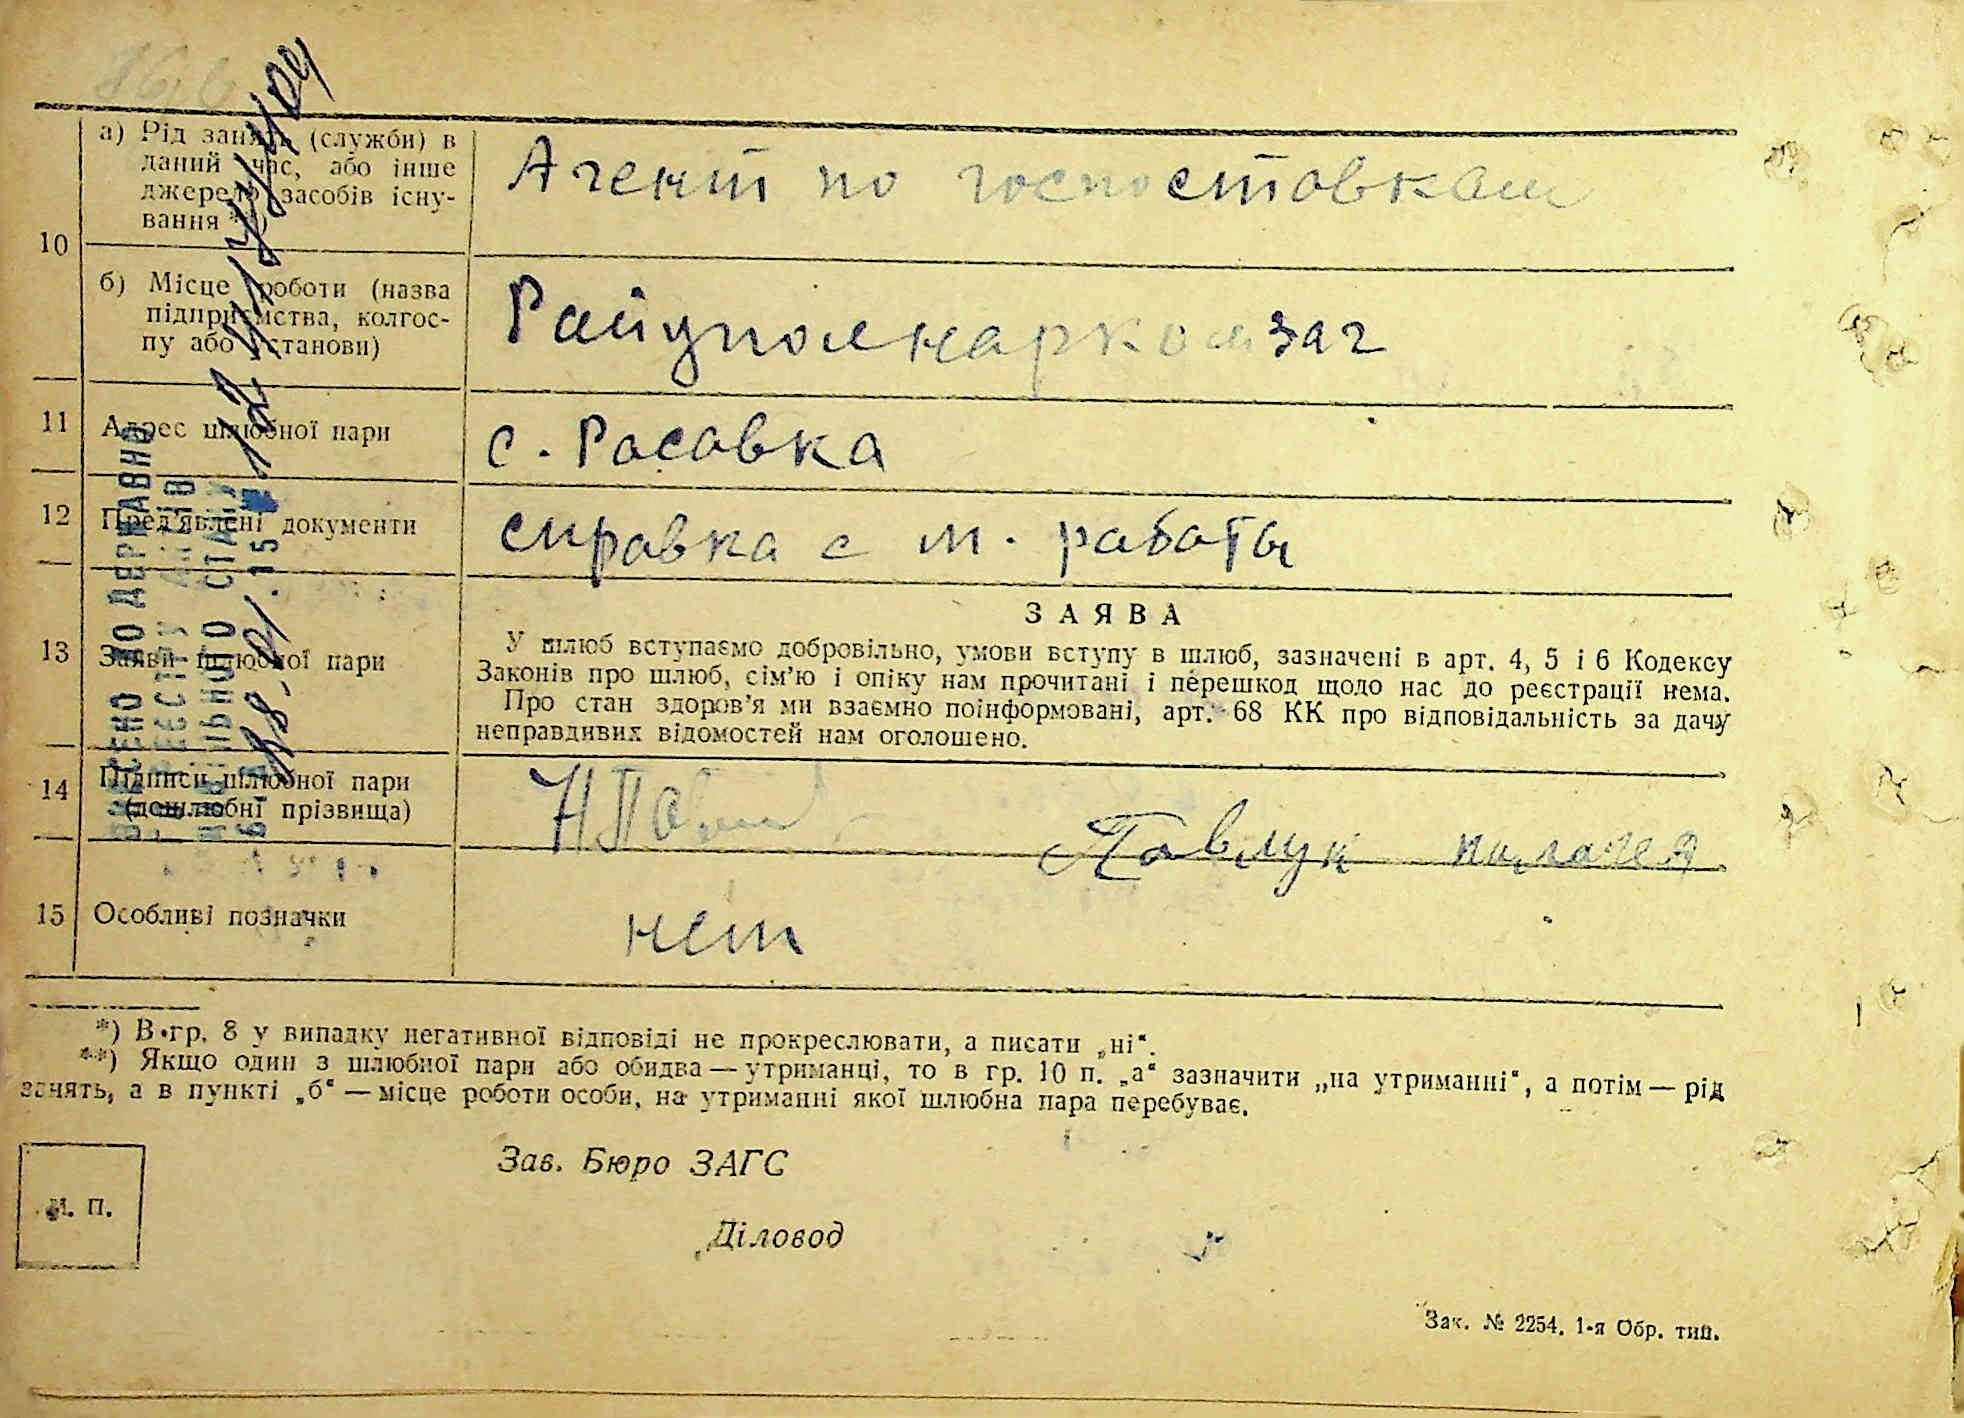 10
а) Рід занять (служби) в
даний час, або інше
джерело засобів існу-
вання **)
Агент по госпоставкам
б) Місце роботи (назва
підприємства, колгос-
пу або установи)
Райуполнаркомзаг
11 Адрес шлюбної пари
с. Росавка
12 Пред'явлені документи
справка с м. работы
13 Заяви шлюбної пари
ЗАЯВА
У шлюб вступаємо добровільно, умови вступу в шлюб, зазначені в арт. 4, 5 і 6 Кодексу
Законів про шлюб, сім'ю і опіку нам прочитані і перешкод щодо нас до реєстрації нема.
Про стан здоров'я ми взаємно поінформовані, арт. 68 КК про відповідальність за дачу
неправдивих відомостей нам оголошено.
14 Підписи шлюбної пари
(дошлюбні прізвища)
Павлук
15 Особливі позначки
нет
ВНЕСЕНО ДО ДЕРЖАВНОГО
РЕЄСТРУ АКТІВ
ЦИВІЛЬНОГО СТАНУ
*) В гр. 8 у випадку негативної відповіді не прокреслювати, а писати „ні“.
**) Якщо один з шлюбної пари або обидва — утриманці, то в гр. 10 п. „а“ зазначити „на утриманні“, а потім — рід
занять, а в пункті „б“ — місце роботи особи, на утриманні якої шлюбна пара перебуває.
Зав. Бюро ЗАГС
М. П.
Діловод
Зак. № 2254. 1-я Обр. тип.